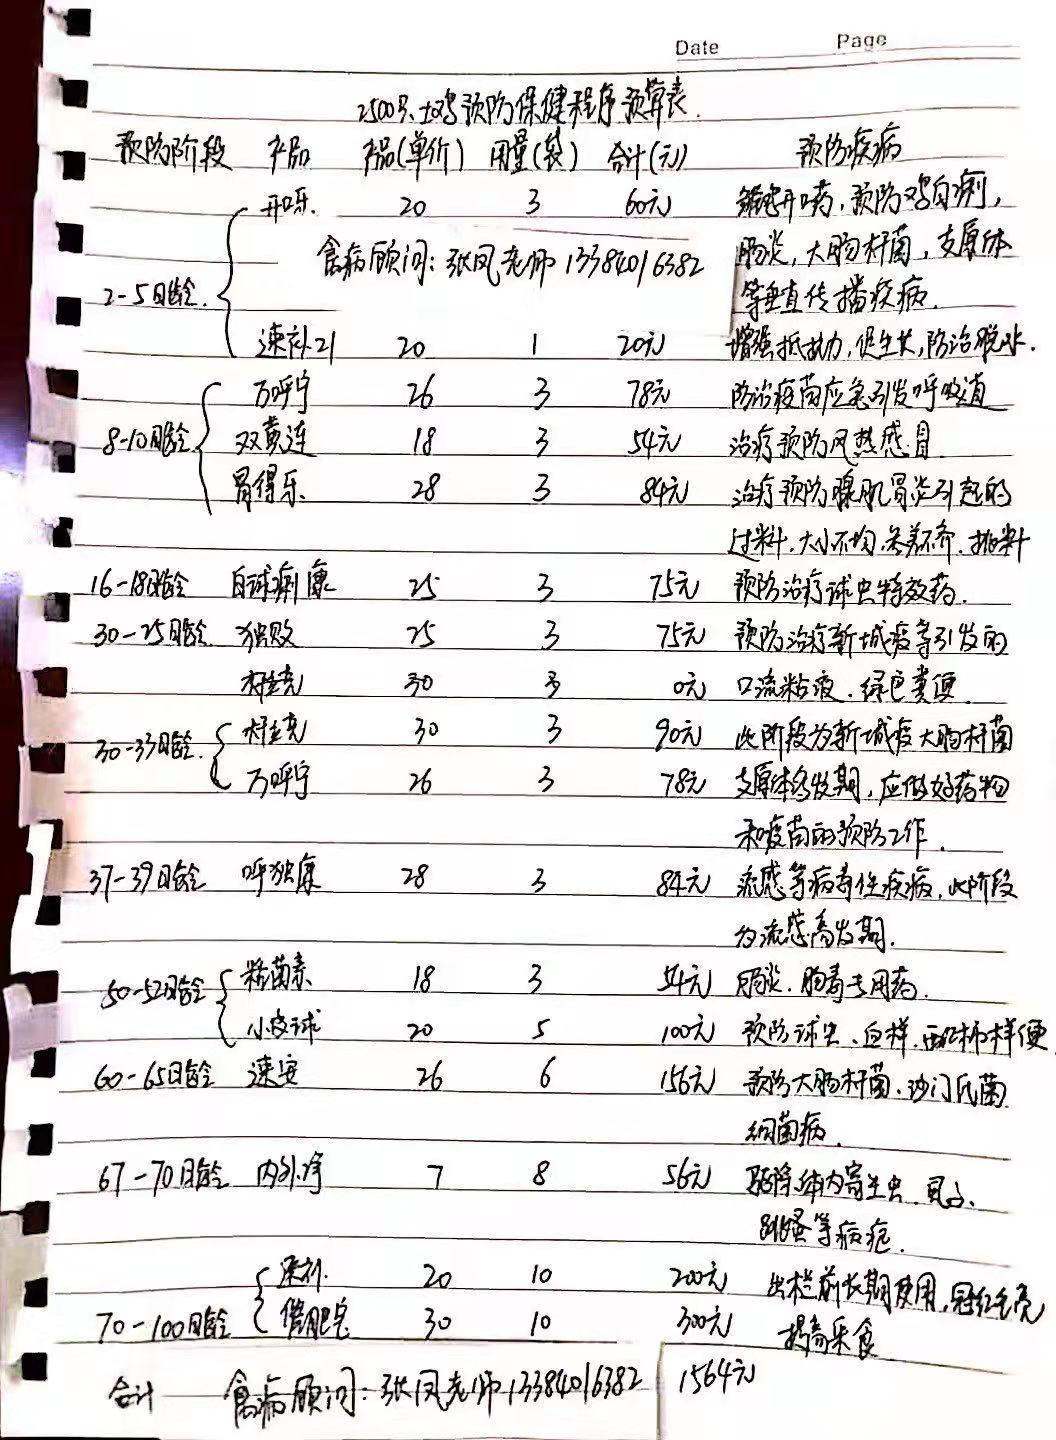 Date Page
2500只土鸡预防保健程序预算表.
预防阶段 产品 产品(单价) 用量(袋) 合计(元) 预防疾病
开口乐. 20 3 60元 雏鸡开口药,预防鸡白痢,
禽病顾问:张凤老师13384016382 肠炎,大肠杆菌,支原体
2-5日龄. 等垂直传播疾病.
速补21 20 1 20元 增强抵抗力,促生长,防治脱水.
万呼宁 26 3 78元 防治疫苗应急引发呼吸道
8-10日龄 双黄连 18 3 54元 治疗预防风热感冒
胃得乐. 28 3 84元 治疗预防腺肌胃炎引起的
过料.大小不均.参差不齐.挑料
16-18日龄 白球痢康 25 3 75元 预防治疗球虫特效药.
30-25日龄 独败 25 3 75元 预防治疗新城疫等引发的
杆克 30 3 0元 口流粘液.绿色粪便
30-33日龄. 杆克 30 3 90元 此阶段为新城疫大肠杆菌
万呼宁 26 3 78元 支原体多发期,应做好药物
和疫苗的预防工作.
37-39日龄 呼独康 28 3 84元 流感等病毒性疾病,此阶段
为流感高发期.
50-52日龄 粘菌素 18 3 54元 肠炎.肠毒专用药.
小皮球 20 5 100元 预防球虫、血样.西红柿样便
60-65日龄 速安 26 6 156元 预防大肠杆菌.沙门氏菌
细菌病.
67-70日龄 内外净 7 8 56元 驱除体内寄生虫.虱子、
跳蚤等病疤.
速补. 20 10 200元 出栏前长期使用,冠红毛亮
70-100日龄 催肥宝 30 10 300元 提高采食
合计 禽病顾问:张凤老师13384016382 1564元